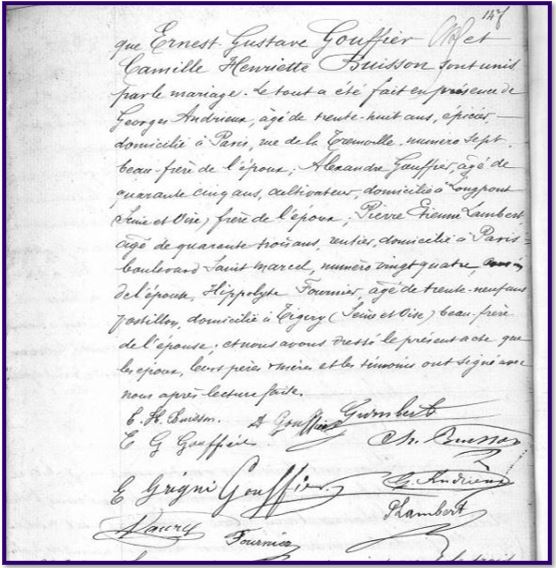 que Ernest Gustave Gouffier et
Camille Henriette Buisson sont unis
par le mariage. Le tout a été fait en présence de
Georges Andrieux, âgé de trente-huit ans, épicier
domicilié à Paris, rue de la Tremoille, numéro sept
beau-frère de l'époux; Alexandre Gouffier, âgé de
quarante cinq ans, cultivateur, domicilié à Longpont
Seine et Oise) frère de l'époux; Pierre Etienne Lambert
âgé de quarante trois ans, rentier, domicilié à Paris
boulevard Saint Marcel, numéro vingt quatre,
de l'épouse, Hippolyte Fournier, âgé de trente-neuf ans
Postillon, domicilié à Tigery (Seine et Oise) beau-frère
de l'épouse; et nous avons dressé le présent acte que
les époux, leurs pères mères et les témoins ont signé avec
nous après lecture faite.
C. H. Buisson. A Gouffier
E G Gouffier Ch. Buisson
Gouffier G. Andrieux
Lambert
Fournier